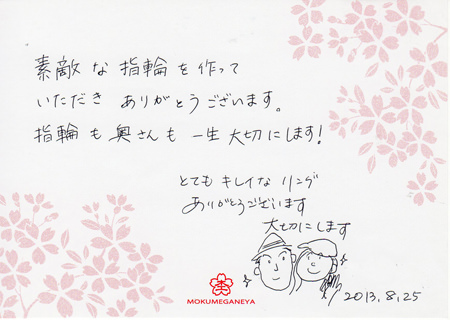 素敵な指輪を作って
いただき ありがとうございます。
指輪も奥さんも一生大切にします!
とても キレイな リング
ありがとうございます
大切にします
MOKUMEGANEYA
2013.8.25